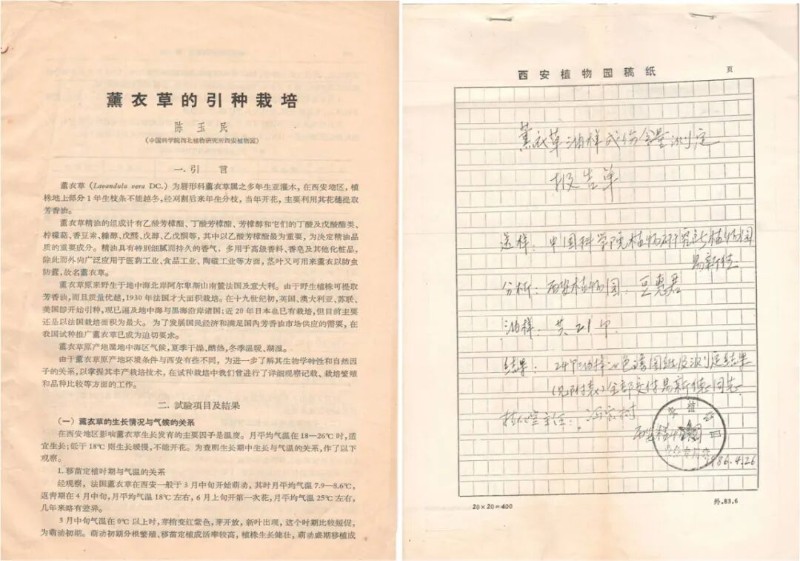 薰衣草的引种栽培
陈玉民
(中国科学院西北植物研究所西安植物园)
一、引 言
薰衣草 (Lavandula vera DC.) 为唇形科薰衣草属之多年生亚灌木,在西安地区,植
株地上部分1年生枝条不能越冬,经刈割后来年生分枝,当年开花,主要利用其花穗提取
芳香油。
薰衣草精油的组成计有乙酸芳樟酯、丁酸芳樟酯、芳樟醇和它们的丁酸及戊酸酯类、
柠檬萜、香豆素、
等,其中以乙酸芳樟酯最为重要,为决定精油品
质的重要成分。精油具有特别细腻而持久的香气,多用于高级香料、香皂及其他化妆品,
除此而外尚广泛应用于医药工业、食品工业、陶磁工业等方面,茎叶又可用来薰衣以防虫
防蠹,故名薰衣草。
薰衣草原来野生于地中海北岸阿尔卑斯山南麓法国及意大利。由于野生植株可提取
芳香油,而且质量优越,1930年法国才大面积栽培。在十九世纪初,英国、澳大利亚、苏联、
美国即开始引种,现已遍及地中海与黑海沿岸诸国;近20年日本也已有栽培,但目前主要
还是以法国栽培面积为最大。为了发展国民经济和满足国内芳香油市场供应的需要,在
我国试种推广薰衣草已成为迫切要求。
薰衣草原产地属地中海区气候,夏季干燥、酷热,冬季温暖、潮湿。
由于薰衣草原产地环境条件与西安有些不同,为进一步了解其生物学特性和自然因
子的关系,以掌握其丰产栽培技术,在试种栽培中我们曾进行了详细观察记载、栽培繁殖
和品种比较等方面的工作。
二、试验项目及结果
(一)薰衣草的生长情况与气候的关系
在西安地区影响薰衣草生长发育的主要因子是温度。月平均气温在18—26℃时,适
宜生长;低于18℃则生长缓慢,不能开花。为查明生长期中生长与气温的关系,作了以下
观察。
1.移苗定植时期与气温的关系
经观察,法国薰衣草在西安一般于3月中旬开始萌动,其时月平均气温7.9—8.6℃,
返青期在4月中旬,月平均气温18℃左右,6月上旬开第一次花,月平均气温25℃左右,
几年来略有差异。
3月中旬气温在9℃以上时,芽稍变红紫色,芽开放,新叶出现,这个时期比较短促,
为萌动初期。萌动初期分根繁殖、移苗定植成活率较高,植株生长健壮,萌动盛期移植成
西安植物园稿纸 页
薰衣草油样成份含量测定
报告单
送样:中国科学院植物研究所北京植物园
分析:西安植物园
油样:共21个
结果:
西安植物园
1986.4.26
20×20=400 外.83.6